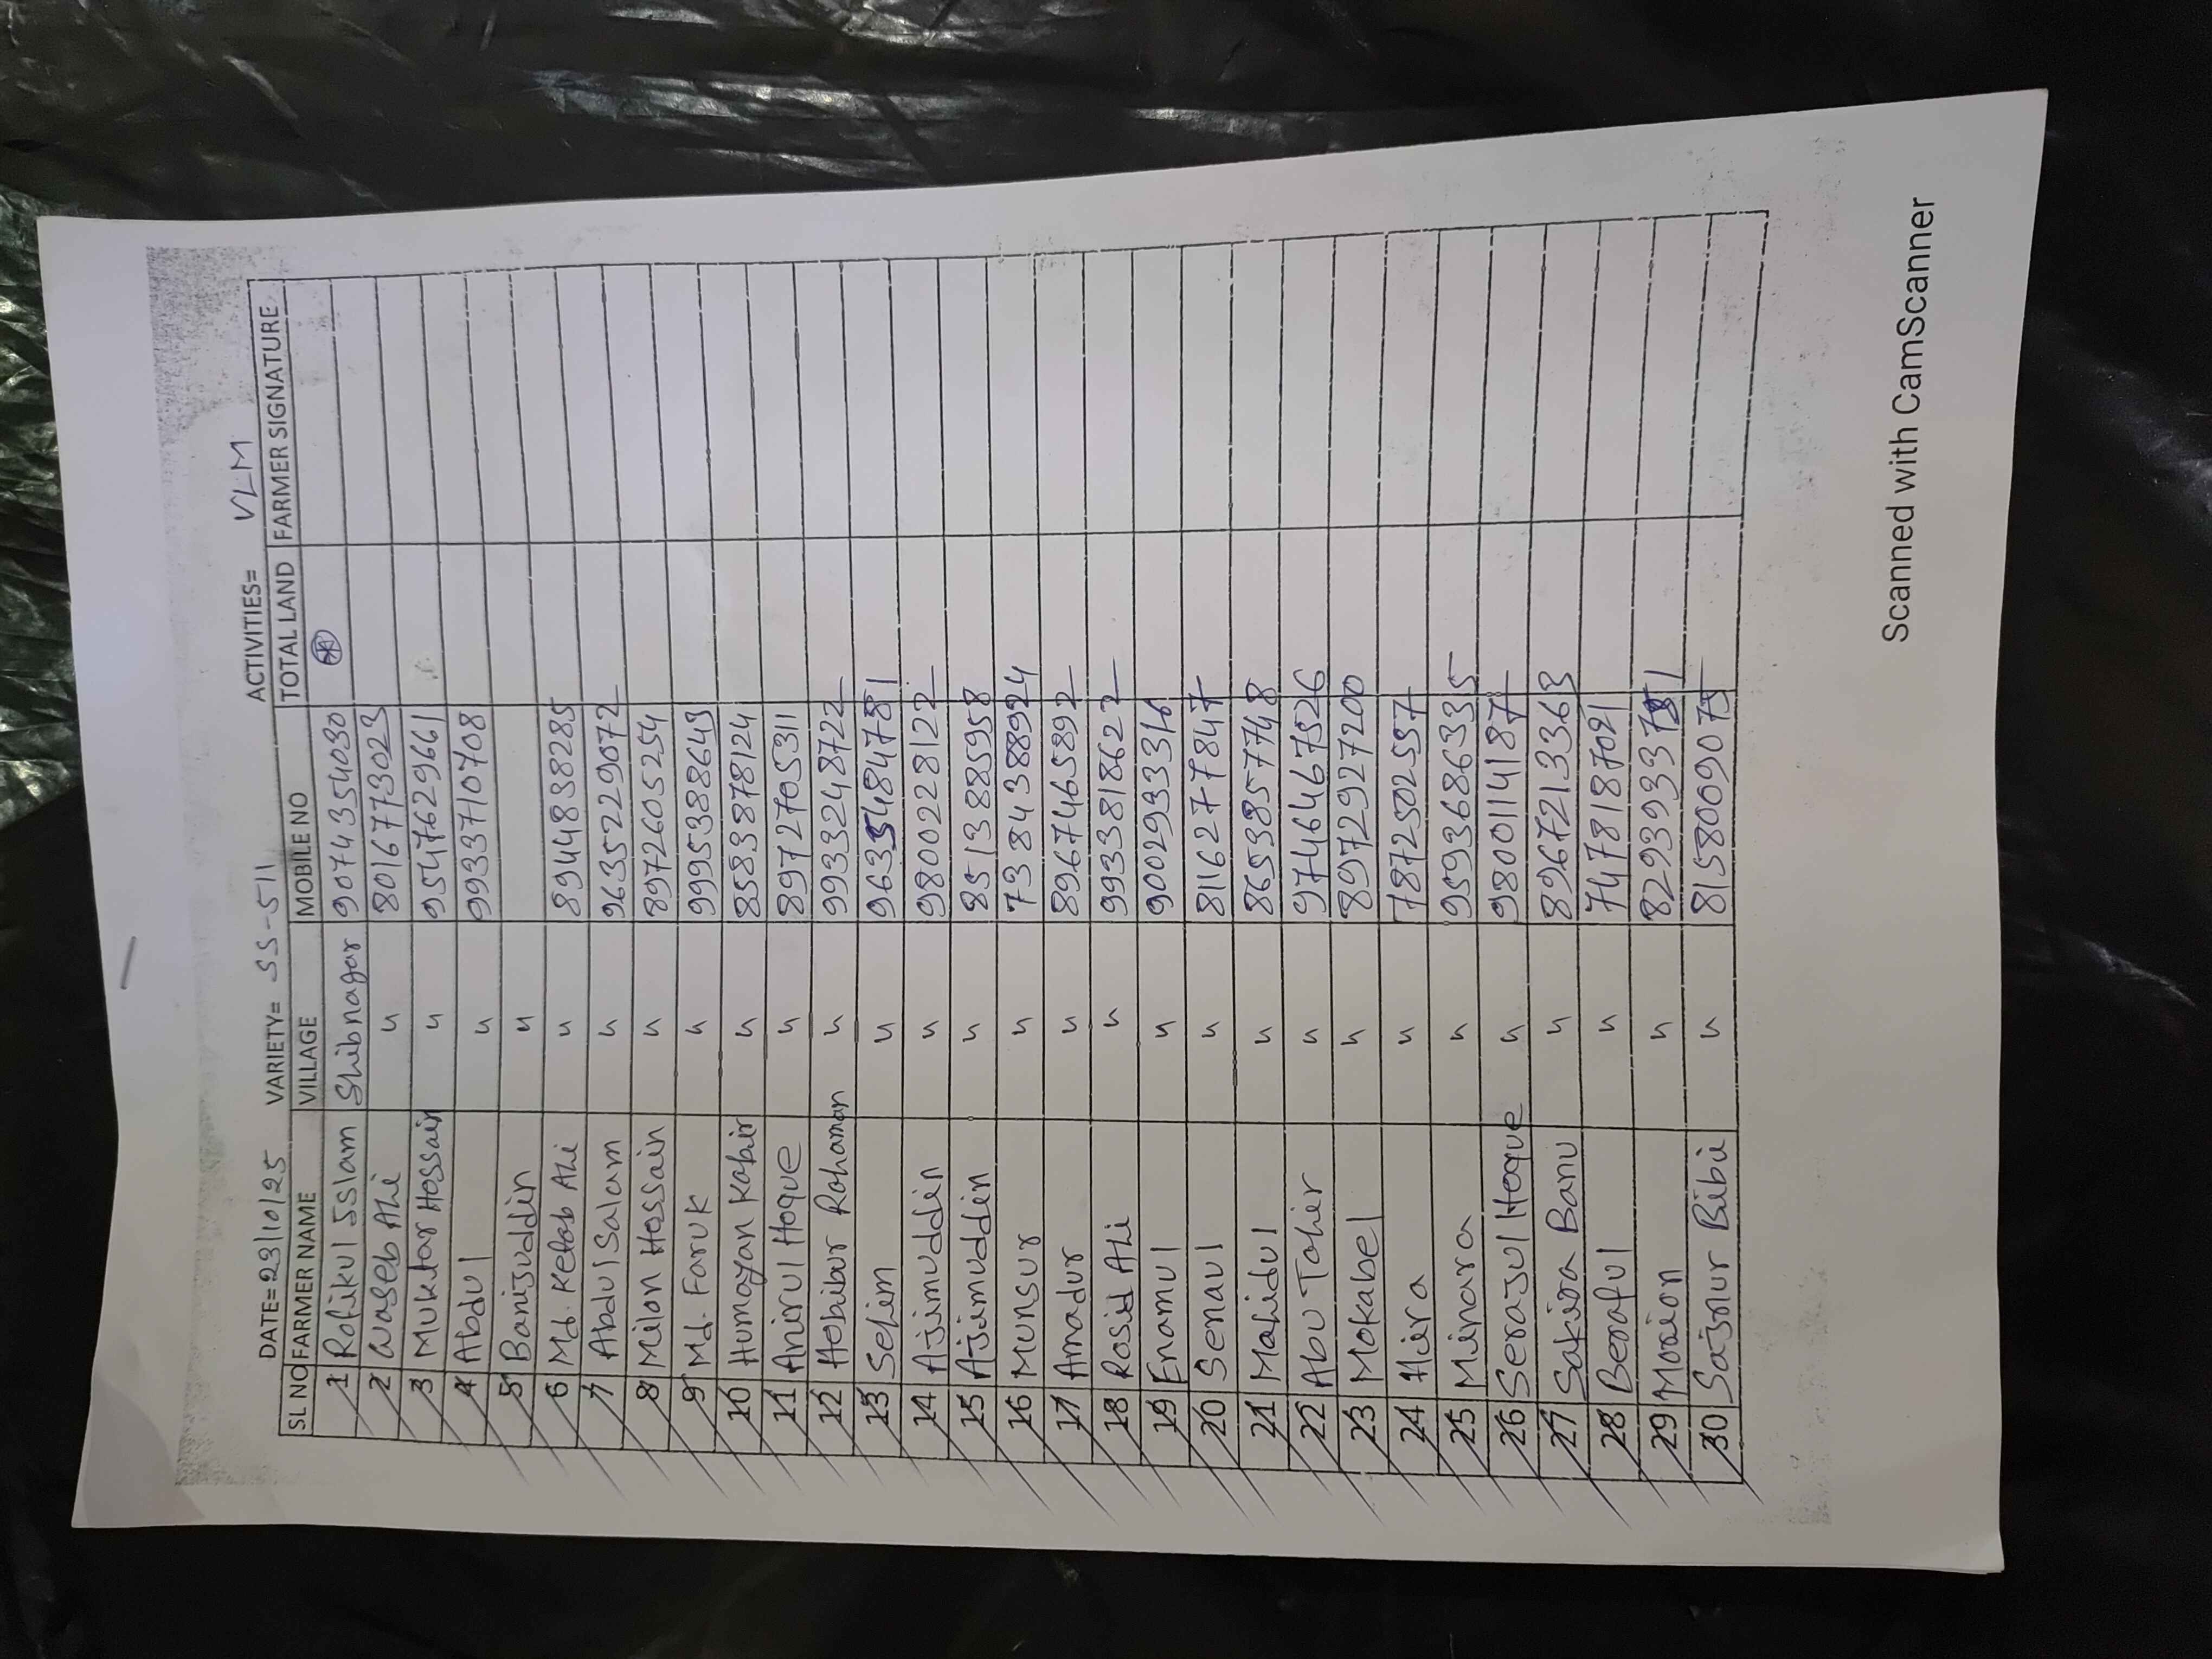 DATE=23/10/25 VARIETY= SS-511 ACTIVITIES= VLM
SL NO FARMER NAME VILLAGE MOBILE NO TOTAL LAND FARMER SIGNATURE
1 Rofikul Islam Shibnagar 9074354030
2 Waseb Ali " 8016773023
3 Muktar Hossain " 9547629661
4 Abdul " 9933710708
5 Banijuddin "
6 Md. Ketab Ali " 8944838285
7 Abdul Salam " 9635229072
8 Milon Hossain " 8972605254
9 Md. Faruk " 9995388643
10 Humayan Kabir " 8583878124
11 Anirul Hoque " 8972705311
12 Hobibur Rohaman " 9933248722
13 Selim " 9635484781
14 Ajimuddin " 9800228122
15 Ajimuddin " 8513885958
16 Munsur " 7384388924
17 Amadur " 8967465892
18 Rosid Ali " 9933818622
19 Enamul " 9002933316
20 Semaul " 8116277847
21 Mahidul " 8653857748
22 Abu Taher " 9746467326
23 Mokabel " 8972927200
24 Hira " 7872502557
25 Minara " 9593686335
26 Serajul Hoque " 9800114187
27 Sakira Banu " 8967213363
28 Beraful " 7478187021
29 " 82939337
30 Sajnur Bibi " 8158009075
Scanned with CamScanner